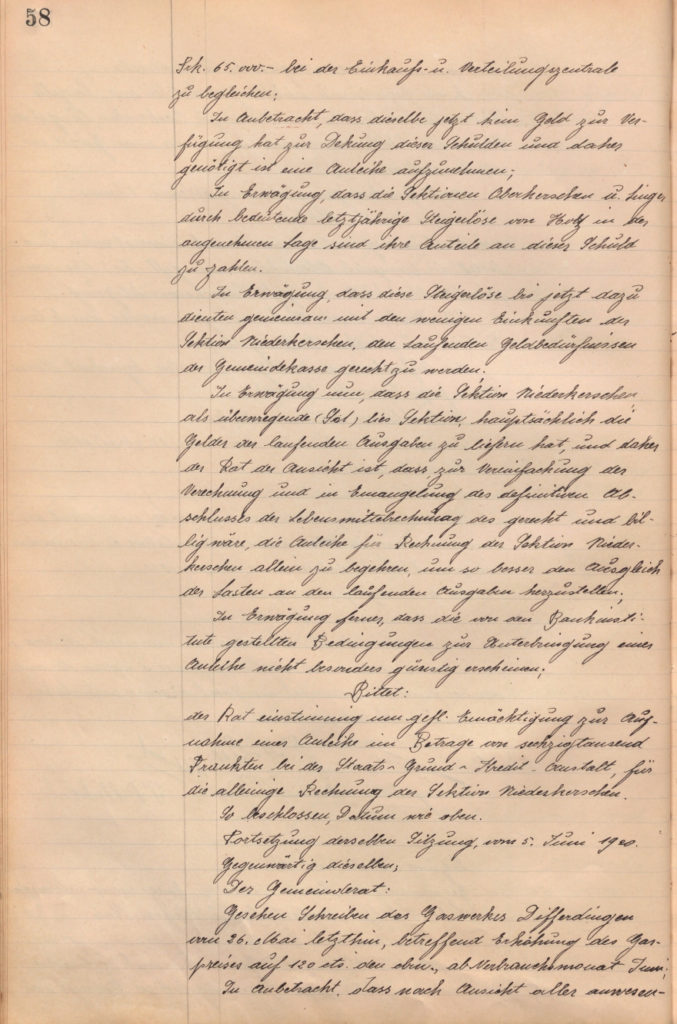 58
Frk. 65.000.- bei der Einkaufs- u. Verteilungszentrale
zu begleichen;
In Anbetracht, dass dieselbe jetzt kein Geld zur Ver-
fügung hat zur Dekung dieser Schulden und daher
genötigt ist eine Anleihe aufzunehmen;
In Erwägung, dass die Sektionen Oberkerschen u. Linger
durch bedeutende letztjährige Steigerlöse von Holz in der
angenehmen Lage sind ihre Anteile an dieser Schuld
zu zahlen.
In Erwägung, dass diese Steigerlöse bis jetzt dazu
dienten gemeinsam mit den wenigen Einkünften der
Sektion Niederkerschen, den laufenden Geldbedürfnissen
der Gemeindekasse gerecht zu werden;
In Erwägung nun, dass die Sektion Niederkerschen,
als überwiegende (Sol) lies Sektion, hauptsächlich die
Gelder der laufenden Ausgaben zu liefern hat, und daher
der Rat der Ansicht ist, dass zur Vereinfachung der
Verechnung und in Emangelung des definitiven Ab-
schlusses der Lebensmittelrechnung des gerecht und bil-
lig wäre, die Anleihe für Rechnung der Sektion Nieder-
kerschen allein zu begehren, um so besser den Ausgleich
der Lasten an den laufenden Ausgaben herzustellen;
In Erwägung ferner, dass die von den Bankinsti-
tute gestellten Bedingungen zur Unterbringung einer
Anleihe nicht besonders günstig erscheinen;
Bittet:
der Rat einstimmig um gefl. Emächtigung zur Auf-
nahme einer Anleihe im Betrage von sechzigtausend
Frankten bei der Staats- Grund- Kredit- Anstalt, für
die alleinige Rechnung der Sektion Niederkerschen.
So beschlossen, Datum wie oben.
Fortsetzung derselben Sitzung, vom 5. Juni 1920.
Gegenwärtig dieselben;
Der Gemeinderat:
Gesehen Schreiben des Gaswerkes Differdingen
vom 26. Mai letzthin, betreffend Erhöhung des Gas-
preises auf 120 cts. den cbm., ab Verbrauchsmonat Juni;
In Anbetracht, dass nach Ansicht aller anwesen-